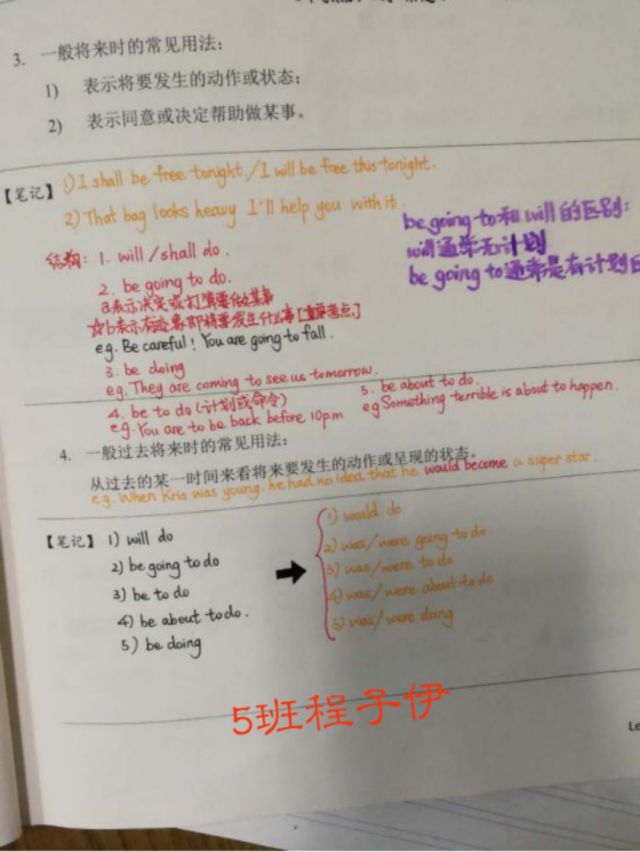 3. 一般将来时的常见用法：
1) 表示将要发生的动作或状态；
2) 表示同意或决定帮助做某事。
【笔记】1) I shall be free tonight. / I will be free this tonight.
2) That bag looks heavy I'll help you with it.
be going to 和 will 的区别：
will 通常无计划
be going to 通常是有计划
结构：1. will /shall do.
2. be going to do.
a表示决定或打算要做某事
☆b表示有迹象即将要发生什么事[重要考点]
e.g. Be careful! You are going to fall.
3. be doing
eg. They are coming to see us tomorrow.
4. be to do (计划或命令)
e.g. You are to be back before 10pm
5. be about to do.
eg Something terrible is about to happen.
4. 一般过去将来时的常见用法：
从过去的某一时间来看将来要发生的动作或呈现的状态。
e.g. When Kris was young, he had no idea that he would become a super star.
【笔记】1) will do
2) be going to do
3) be to do
4) be about to do.
5) be doing
1) would do
2) was/were going to do.
3) was/were to do
4) was/were about to do
5) was/were doing
5班程子伊
Le